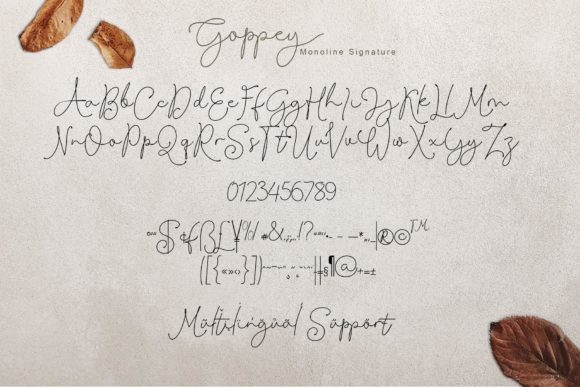 Goppey
Monoline Signature
AaBbCcDdEeFfGgHhIiJjKkLlMm
NnOoPpQqRrSsTtUuVvWwXxYyZz
0123456789
$¢ß£¥%/#&.,;:!?
®©™
([{«»‹›
§¶@+=±
Mültilingüäl Süppört